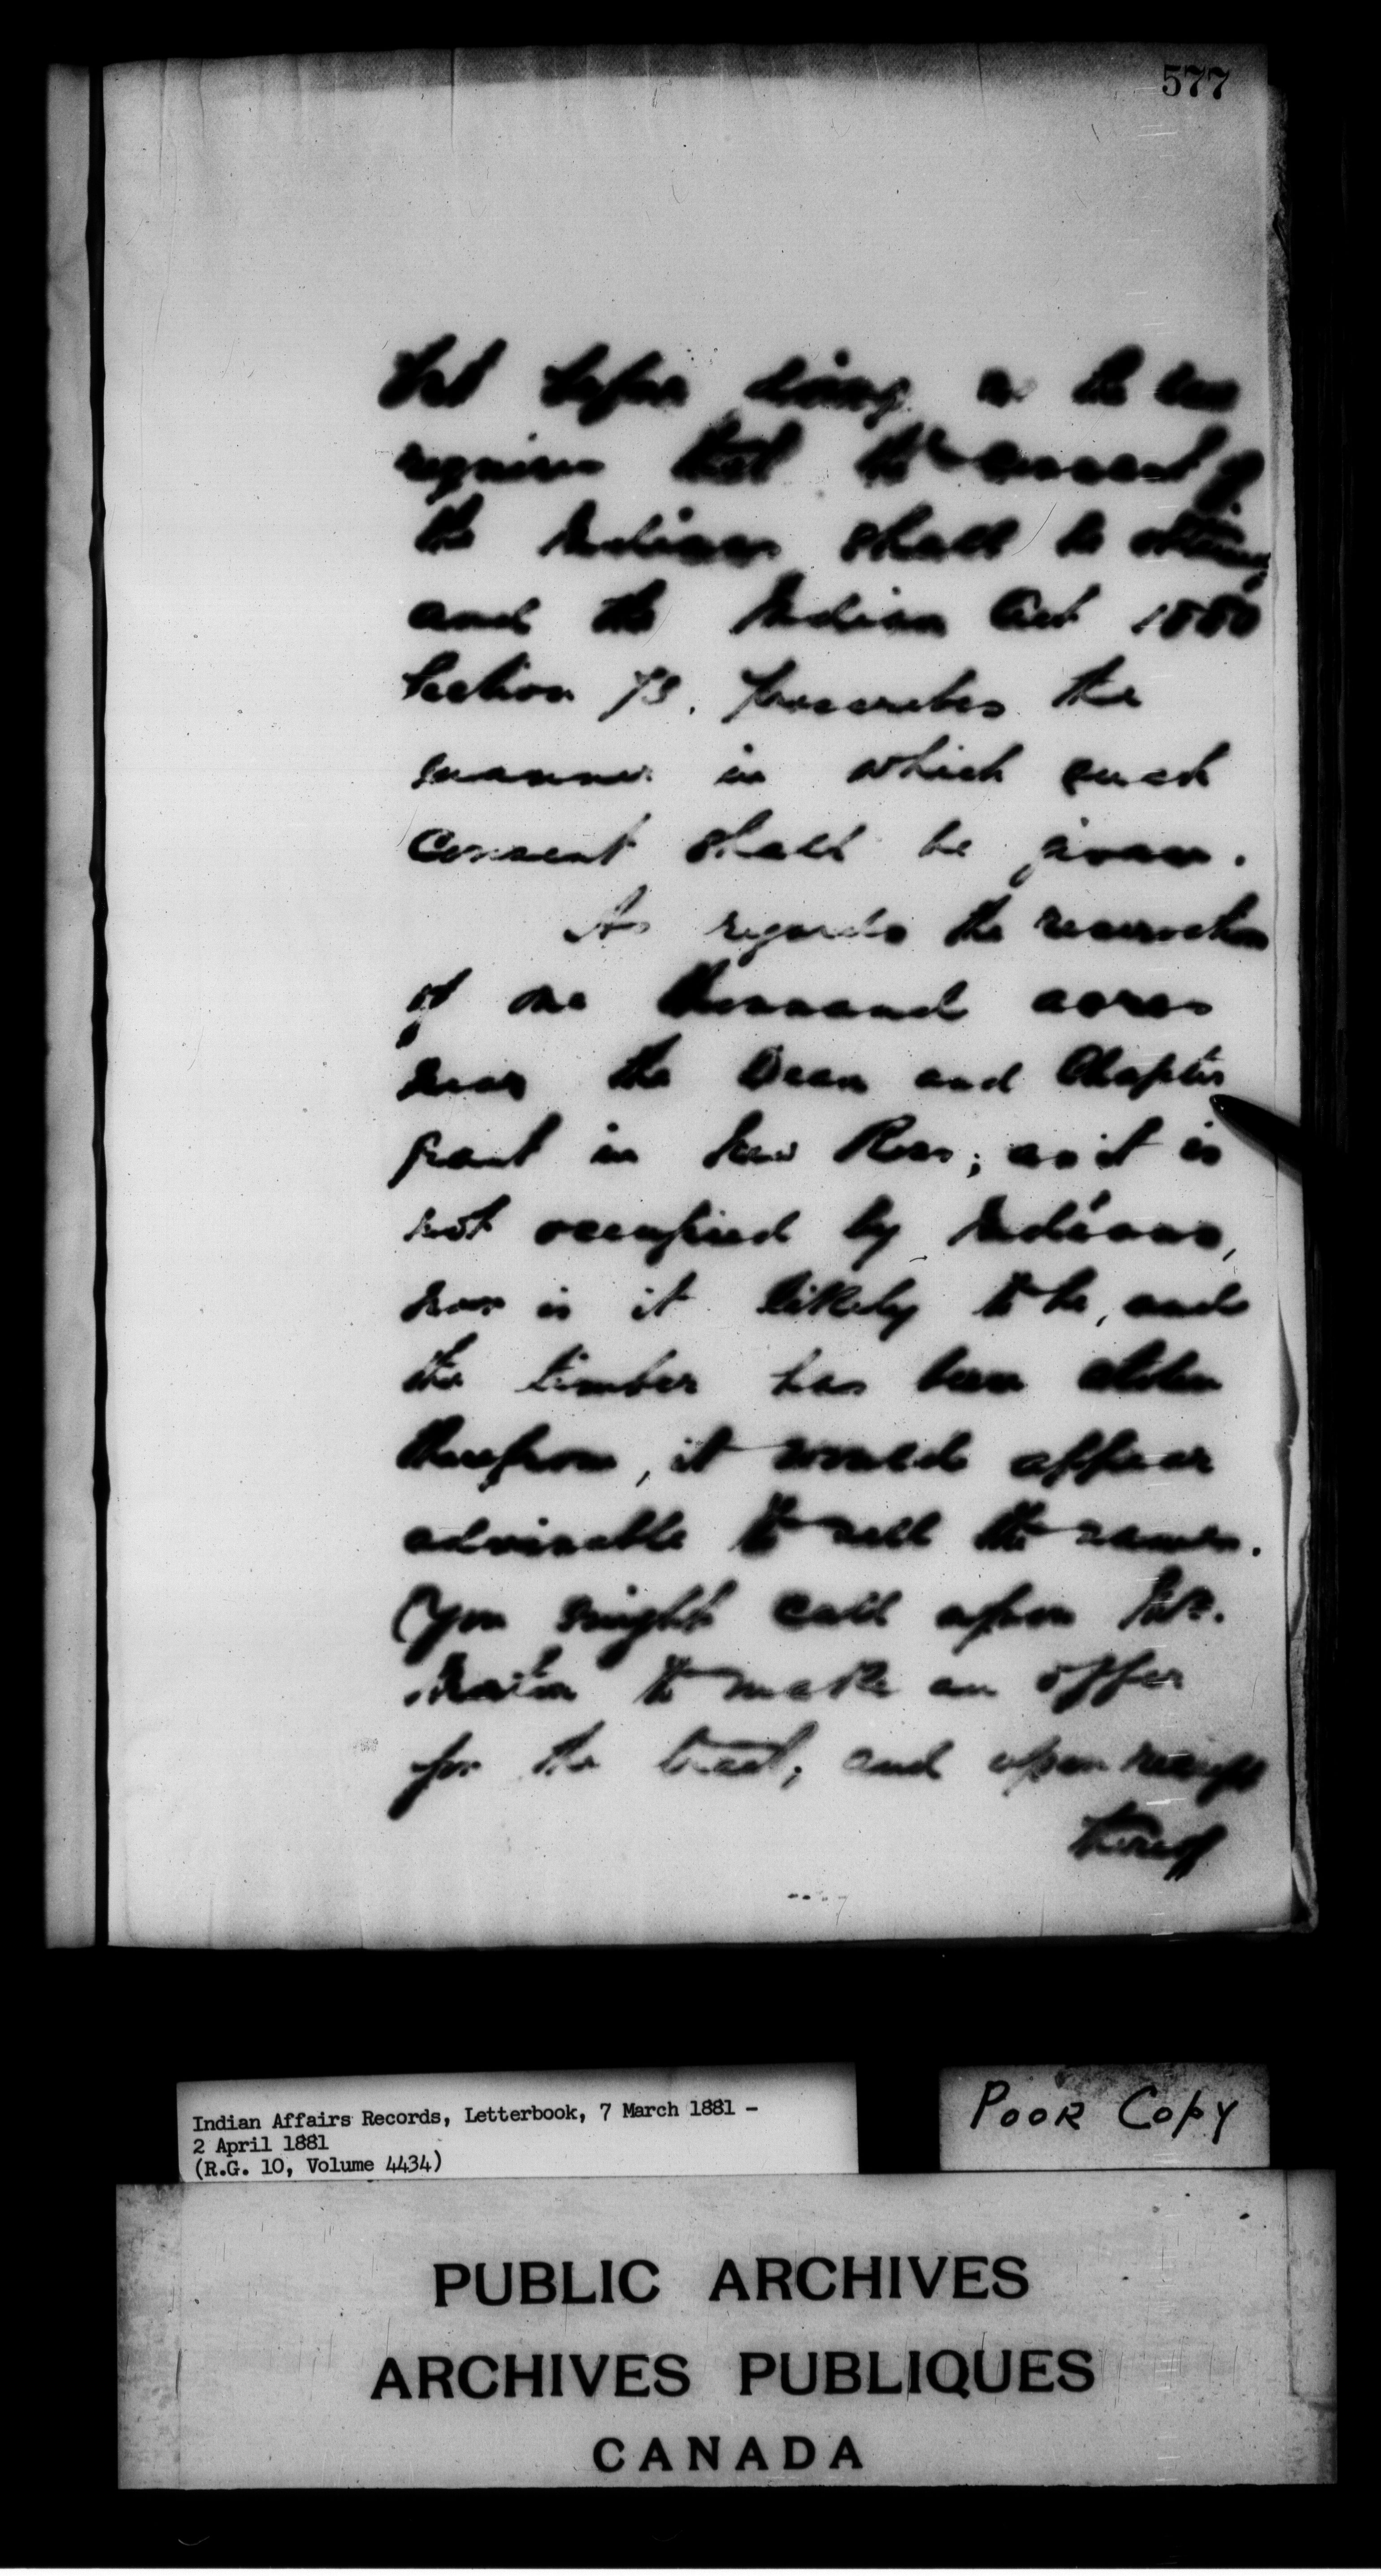 577
but before doing so the law
requires that the consent of
the Indians shall be obtained,
and the Indian Act 1880
Section 73. prescribes the
manner in which such
consent shall be given.
As regards the reservation
of one thousand acres
near the Dean and Chapter
grant in New Ross; as it is
not occupied by Indians,
nor is it likely to be, and
the timber has been stolen
therefrom, it would appear
advisable to sell the same.
You might call upon Mr.
to make an offer
for the tract; and upon receipt
thereof
Indian Affairs Records, Letterbook, 7 March 1881 -
2 April 1881
(R.G. 10, Volume 4434)
POOR COPY
PUBLIC ARCHIVES
ARCHIVES PUBLIQUES
CANADA